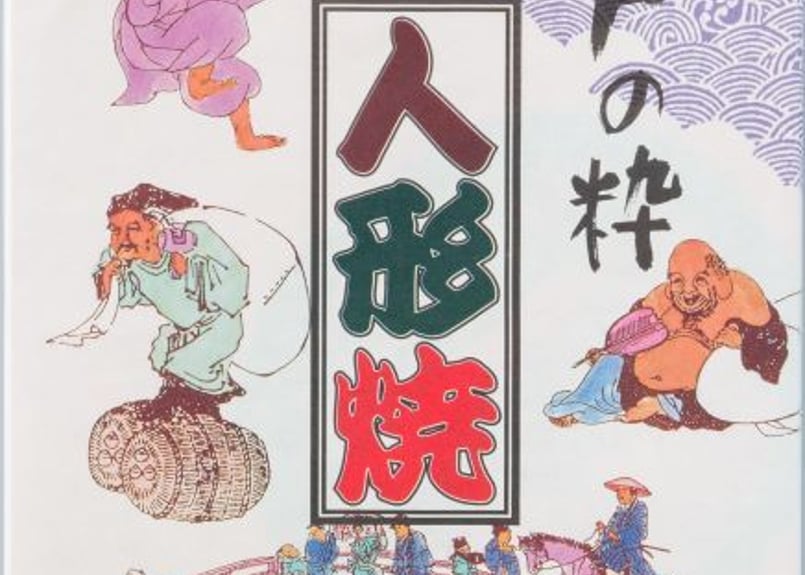 の粋
人形焼